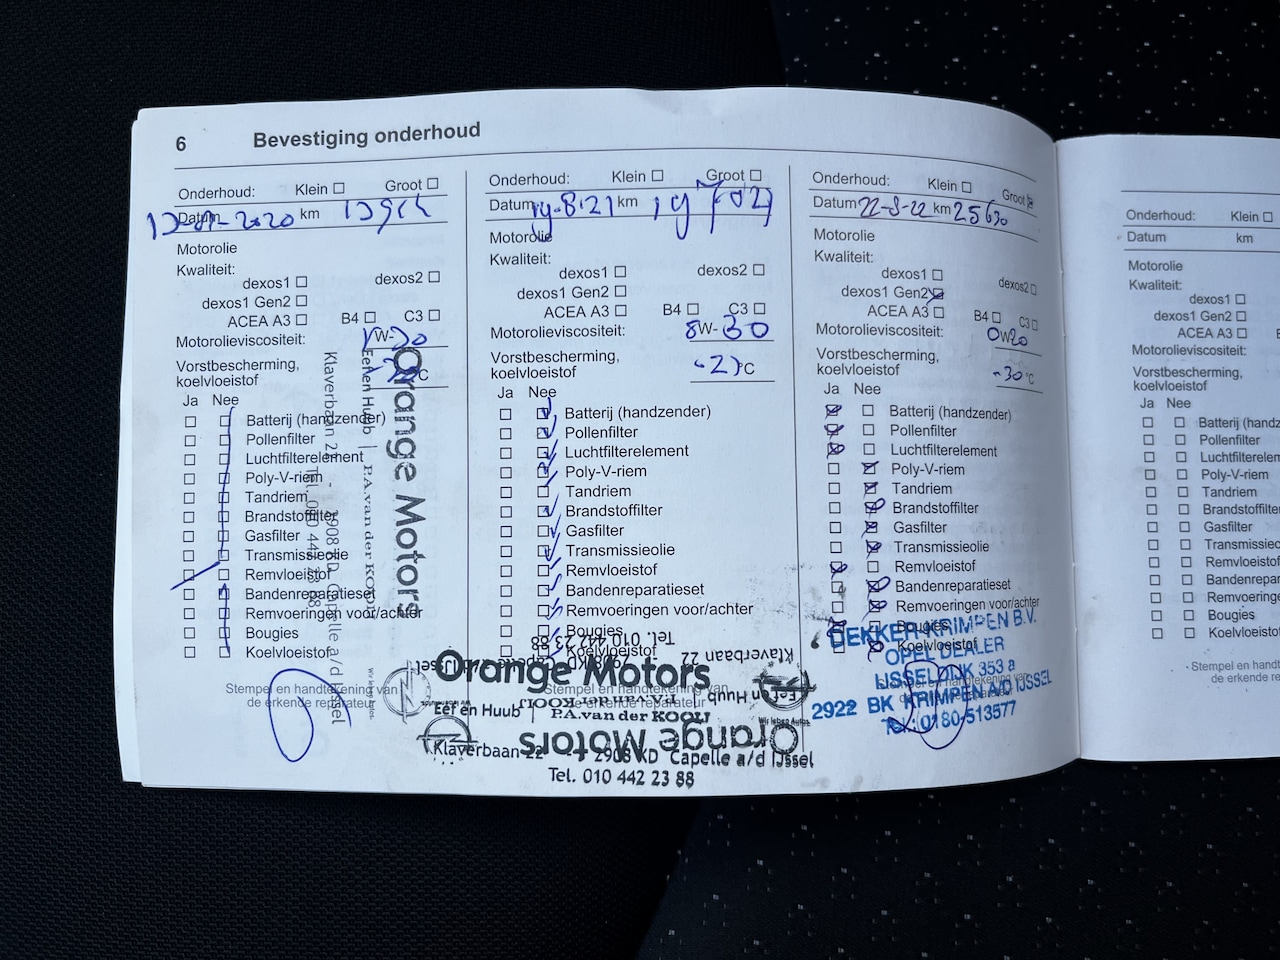 6 Bevestiging onderhoud
Onderhoud: Klein Groot
Datum 2020 km
Motorolie
Kwaliteit:
dexos1 dexos2
dexos1 Gen2
ACEA A3 B4 C3
Motorolieviscositeit: W-
Vorstbescherming,
koelvloeistof °C
Ja Nee
Batterij (handzender)
Pollenfilter
Luchtfilterelement
Poly-V-riem
Tandriem
Brandstoffilter
Gasfilter
Transmissieolie
Remvloeistof
Bandenreparatieset
Remvoeringen voor/achter
Bougies
Koelvloeistof
Stempel en handtekening van
de erkende reparateur
Orange Motors
Eef en Huub | P.A. van der KOOIJ
Klaverbaan 22 - 2908 KD Capelle a/d IJssel
Tel. 010 442 23 88
Onderhoud: Klein Groot
Datum 19-8-21 km 19702
Motorolie
Kwaliteit:
dexos1 dexos2
dexos1 Gen2
ACEA A3 B4 C3
Motorolieviscositeit: W-30
Vorstbescherming,
koelvloeistof °C
Ja Nee
Batterij (handzender)
Pollenfilter
Luchtfilterelement
Poly-V-riem
Tandriem
Brandstoffilter
Gasfilter
Transmissieolie
Remvloeistof
Bandenreparatieset
Remvoeringen voor/achter
Bougies
Koelvloeistof
Stempel en handtekening van
de erkende reparateur
Orange Motors
Eef en Huub | P.A. van der KOOIJ
Klaverbaan 22 - 2908 KD Capelle a/d IJssel
Tel. 010 442 23 88
Orange Motors
Wir leben Autos.
P.A. van der KOOIJ | Eef en Huub
Klaverbaan 22 2908 KD Capelle a/d IJssel
Tel. 010 442 23 88
Onderhoud: Klein Groot
Datum 22-8-22 km 25630
Motorolie
Kwaliteit:
dexos1 dexos2
dexos1 Gen2
ACEA A3 B4 C3
Motorolieviscositeit: 0W20
Vorstbescherming,
koelvloeistof -30 °C
Ja Nee
Batterij (handzender)
Pollenfilter
Luchtfilterelement
Poly-V-riem
Tandriem
Brandstoffilter
Gasfilter
Transmissieolie
Remvloeistof
Bandenreparatieset
Remvoeringen voor/achter
Bougies
Koelvloeistof
DEKKER KRIMPEN B.V.
OPEL DEALER
IJSSELDIJK 353 a
2922 BK KRIMPEN A/D IJSSEL
Tel.: 0180-513577
Onderhoud: Klein
Datum km
Motorolie
Kwaliteit:
dexos1
dexos1 Gen2
ACEA A3
Motorolieviscositeit:
Vorstbescherming,
koelvloeistof
Ja Nee
Batterij (handz
Pollenfilter
Luchtfilterelem
Poly-V-riem
Tandriem
Brandstoffilter
Gasfilter
Transmissieo
Remvloeistof
Bandenrepar
Remvoeringe
Bougies
Koelvloeistof
Stempel en handteke
de erkende re